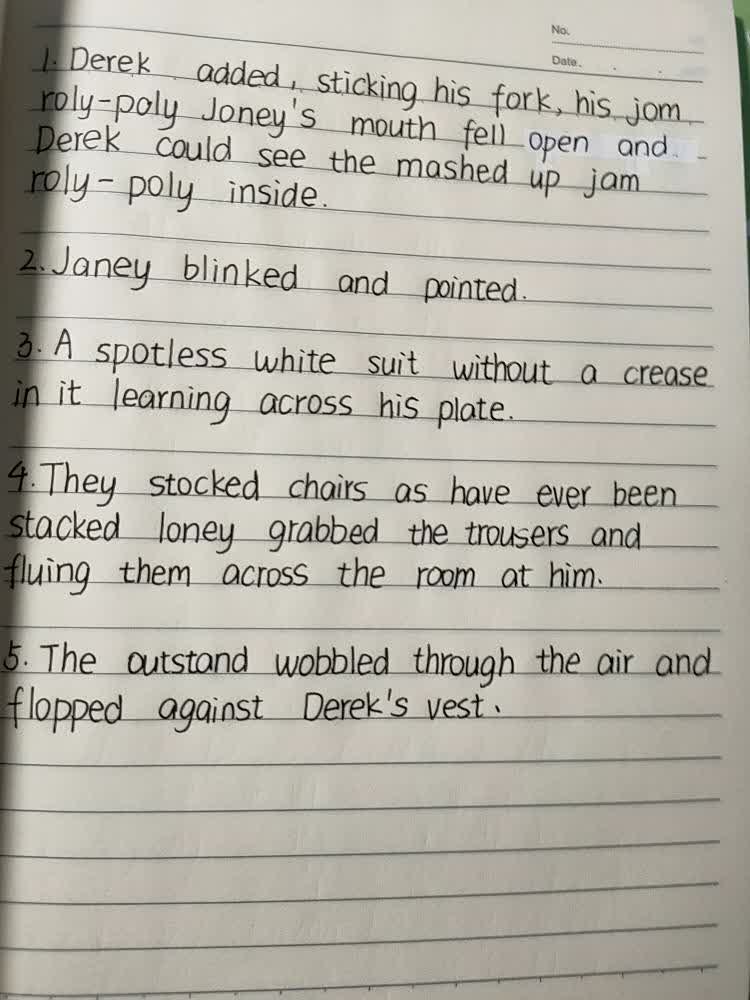 No.
Date. . .
1. Derek added, sticking his fork, his jom
roly-poly Joney's mouth fell open and.
Derek could see the mashed up jam
roly-poly inside.
2. Janey blinked and pointed.
3. A spotless white suit without a crease
in it learning across his plate.
4. They stocked chairs as have ever been
stacked loney grabbed the trousers and
fluing them across the room at him.
5. The outstand wobbled through the air and
flopped against Derek's vest.